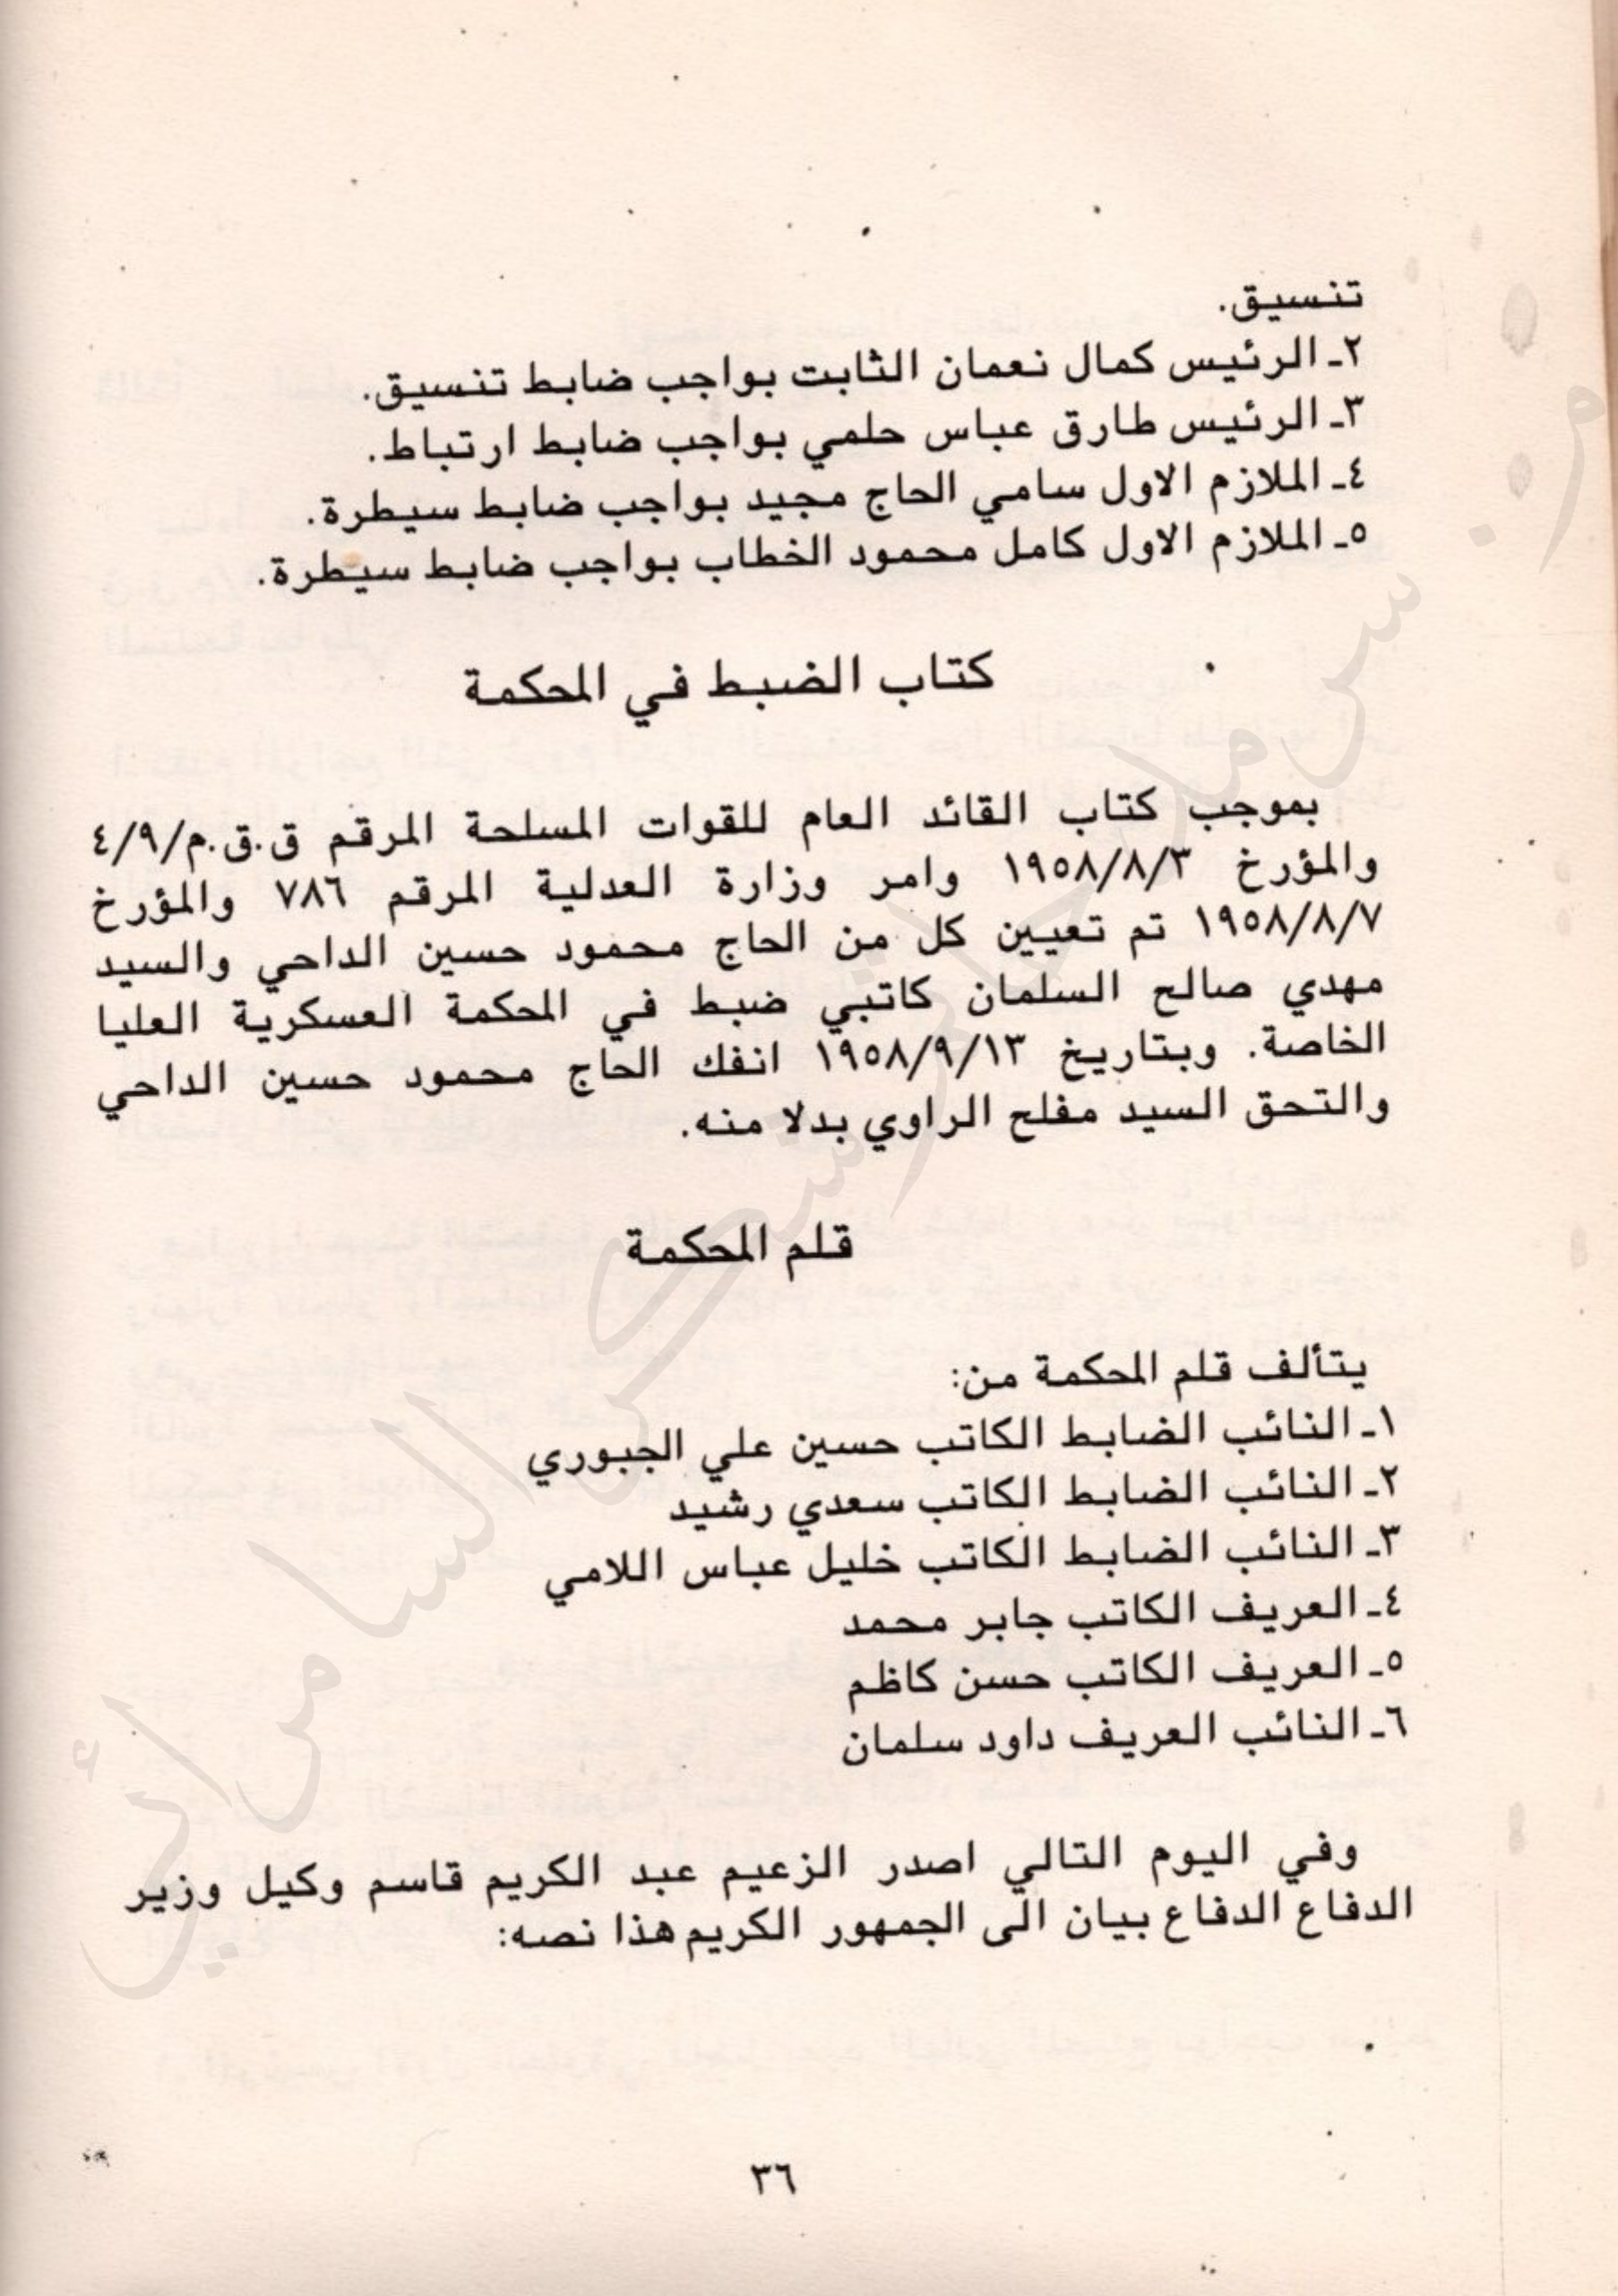 تنسيق.
٢ـ الرئيس كمال نعمان الثابت بواجب ضابط تنسيق.
٣ـ الرئيس طارق عباس حلمي بواجب ضابط ارتباط.
٤ـ الملازم الاول سامي الحاج مجيد بواجب ضابط سيطرة.
٥ـ الملازم الاول كامل محمود الخطاب بواجب ضابط سيطرة.
كتاب الضبط في المحكمة
بموجب كتاب القائد العام للقوات المسلحة المرقم ق.ق.م/٤/٩
والمؤرخ ١٩٥٨/٨/٣ وامر وزارة العدلية المرقم ٧٨٦ والمؤرخ
١٩٥٨/٨/٧ تم تعيين كل من الحاج محمود حسين الداحي والسيد
مهدي صالح السلمان كاتبي ضبط في المحكمة العسكرية العليا
الخاصة. وبتاريخ ١٩٥٨/٩/١٣ انفك الحاج محمود حسين الداحي
والتحق السيد مفلح الراوي بدلا منه.
قلم المحكمة
يتألف قلم المحكمة من:
١ـ النائب الضابط الكاتب حسين علي الجبوري
٢ـ النائب الضابط الكاتب سعدي رشيد
٣ـ النائب الضابط الكاتب خليل عباس اللامي
٤ـ العريف الكاتب جابر محمد
٥ـ العريف الكاتب حسن كاظم
٦ـ النائب العريف داود سلمان
وفي اليوم التالي اصدر الزعيم عبد الكريم قاسم وكيل وزير
الدفاع الدفاع بيان الى الجمهور الكريم هذا نصه:
٣٦